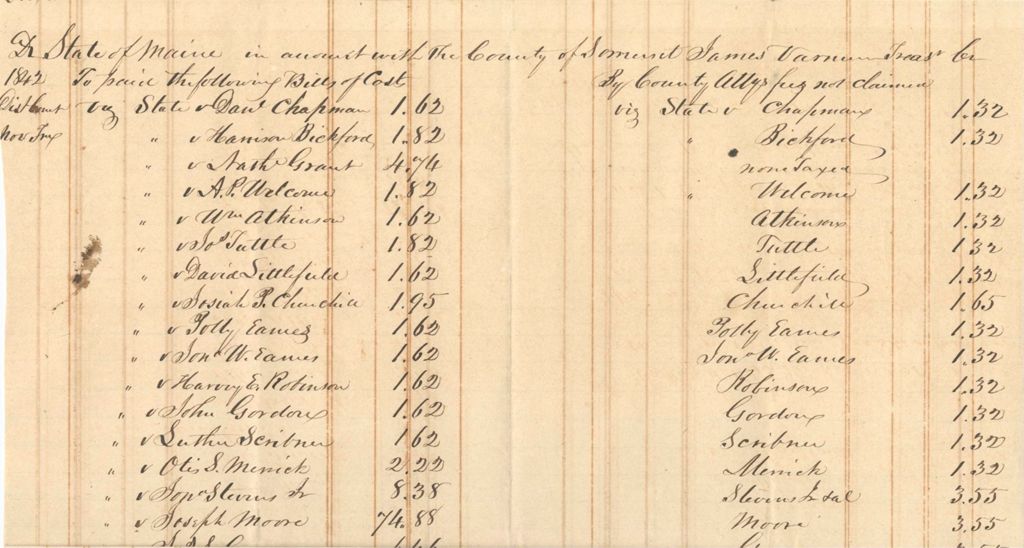 Dr State of Maine in account with the County of Somerset James Varnum Treasr Cr
1842 To paid the following Bills of Cost By County Attys fees not claimed
Dist Court viz State v Danl Chapman 1.62 viz State v Chapman 1.32
Nov Trm " v Harrison Bickford 1.82 " Bickford 1.32
" v Nathl Grant 4.74 none Taxed
" v A.P. Welcome 1.82 " Welcome 1.32
" v Wm Atkinson 1.62 Atkinson 1.32
" v Jos Tuttle 1.82 Tuttle 1.32
" v David Littlefield 1.62 Littlefield 1.32
" v Josiah P. Churchill 1.95 Churchill 1.65
" v Polly Eames 1.62 Polly Eames 1.32
" v Jona W. Eames 1.62 Jona W. Eames 1.32
" v Harvey E. Robinson 1.62 Robinson 1.32
" v John Gordon 1.62 Gordon 1.32
" v Luther Scribner 1.62 Scribner 1.32
" v Otis S. Merrick 2.22 Merrick 1.32
" v Jona Stevens Jr 8.38 Stevens Jr & al 3.55
" v Joseph Moore 74.88 Moore 3.55